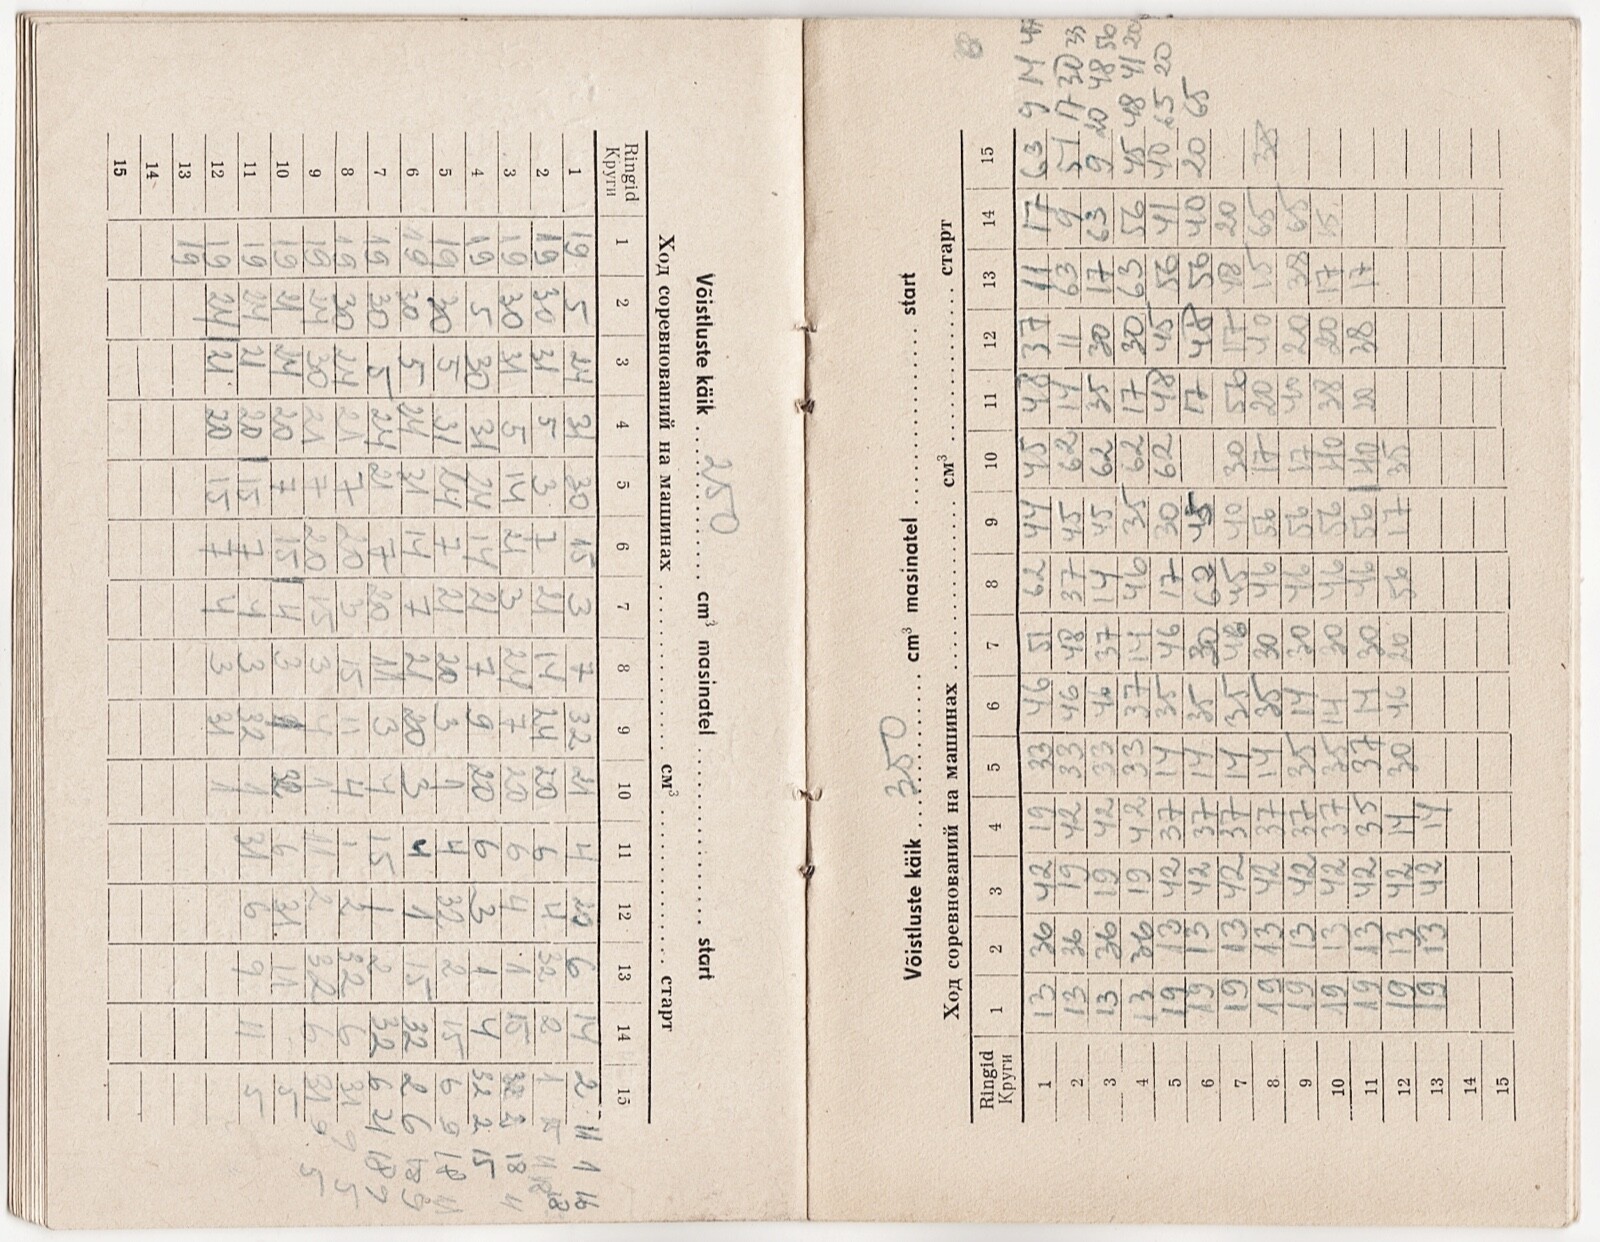 Võistluste käik 250 cm³ masinatel start
Ход соревнований на машинах см³ старт
Ringid Круги 1 2 3 4 5 6 7 8 9 10 11 12 13 14 15
1 19 5 24 31 30 15 3 7 32 21 4 20 6 14 2 11 1 16
2 19 30 31 5 3 7 21 14 24 20 6 4 32 2 1
3 19 30 31 5 14 21 3 24 7 20 6 4 1 15 18 4
4 19 5 30 31 24 14 21 7 9 20 6 3 1 4 32 2 15
5 19 30 5 31 24 7 21 20 3 1 4 32 2 15 6 9 18 11
6 19 30 5 24 31 14 7 21 20 3 4 1 15 32 2 6 18 9
7 19 30 5 24 21 7 20 11 3 4 15 1 2 32 6 21 18 9
8 19 30 24 21 7 20 3 15 11 4 1 2 32 6 31 9 5
9 19 24 30 21 7 20 15 3 4 1 11 2 32 6 31 9 5
10 19 21 24 20 7 15 4 3 6 31 11 5
11 19 24 21 20 15 7 4 3 32 1 31 6 9 11 5
12 19 24 21 20 15 7 4 3 31 1
13 19
14
15
Võistluste käik 350 cm³ masinatel start
Ход соревнований на машинах см³ старт
Ringid Круги 1 2 3 4 5 6 7 8 9 10 11 12 13 14 15
1 13 36 42 19 33 46 51 62 44 45 48 37 11 17 63 9 14
2 13 36 19 42 33 46 48 37 45 62 14 11 63 9 51 17 30 33
3 13 36 19 42 33 46 37 14 45 62 35 30 17 63 9 20 48 56
4 13 36 19 42 33 37 14 46 35 62 17 30 63 56 45 48 41 20
5 19 13 42 37 14 35 46 17 30 62 48 45 56 41 40 65 20
6 19 13 42 37 14 35 30 62 45 17 48 56 40 20 65
7 19 13 42 37 14 35 48 45 40 30 56 17 48 20
8 19 13 42 37 14 35 30 46 56 17 20 40 15 65 38
9 19 13 42 37 35 14 30 46 56 17 40 20 38 65
10 19 13 42 37 35 14 30 46 56 40 38 20 17 15
11 19 13 42 35 37 14 30 46 56 40 20 38 17
12 19 13 42 14 30 46 20 56 17 35
13 19 13 42 14
14
15